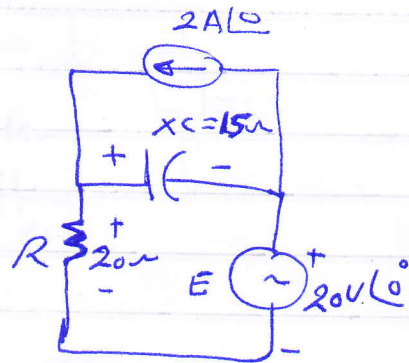 2A∠0
XC=15Ω
+ -
R + 20Ω -
E + 20V∠0° -
~